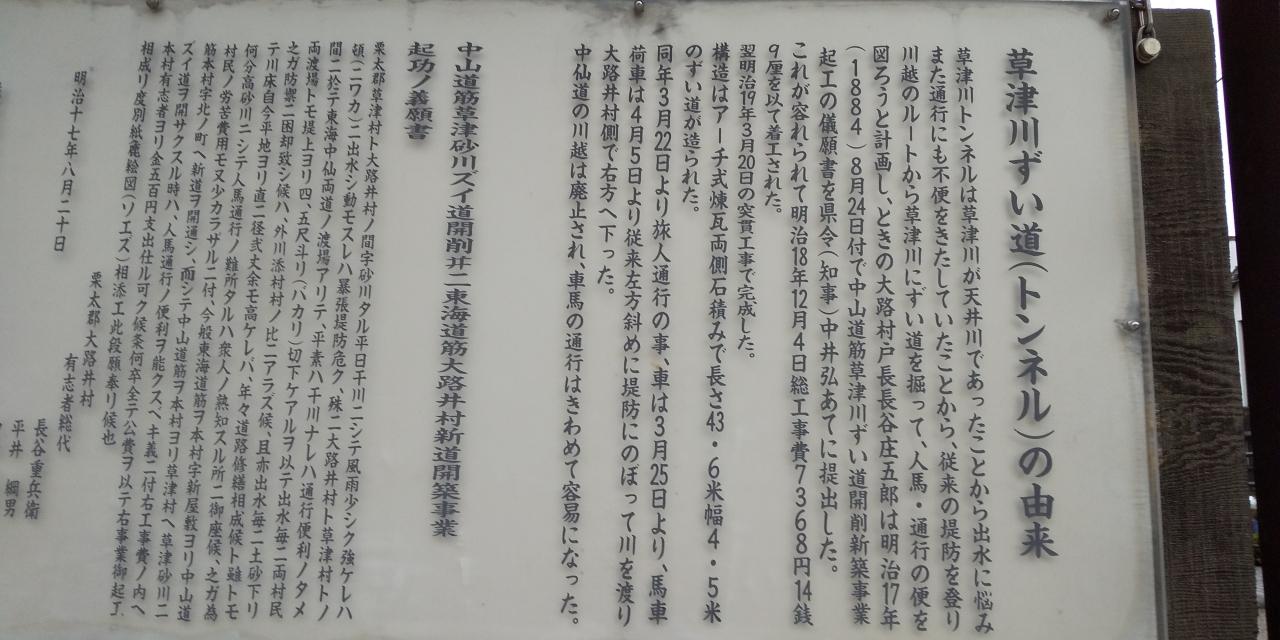 草津川ずい道(トンネル)の由来
草津川トンネルは草津川が天井川であったことから出水に悩み
また通行にも不便をきたしていたことから、従来の堤防を登り
川越のルートから草津川にずい道を掘って、人馬・通行の便を
図ろうと計画し、ときの大路村戸長長谷庄五郎は明治17年
(1884)8月24日付で中山道筋草津川ずい道開削新築事業
起工の儀願書を県令(知事)中井弘あてに提出した。
これが容れられて明治18年12月4日総工事費7368円14銭
9厘を以て着工された。
翌明治19年3月20日の突貫工事で完成した。
構造はアーチ式煉瓦両側石積みで長さ43・6米幅4・5米
のずい道が造られた。
同年3月22日より旅人通行の事、車は3月25日より、馬車
荷車は4月5日より従来左方斜めに堤防にのぼって川を渡り
大路井村側で右方へ下った。
中仙道の川越は廃止され、車馬の通行はきわめて容易になった。
中山道筋草津砂川ズイ道開削井二東海道筋大路井村新道開築事業
起功ノ義願書
栗太郡草津村ト大路井村ノ間字砂川タル平日干川ニシテ風雨少シク強ケレハ
頓(ニワカ)ニ出水シ動モスレハ暴張堤防危ク、殊ニ大路井村ト草津村トノ
間ニ於テ東海中仙両道ノ渡場アリテ、平素ハ干川ナレハ通行便利ノタメ
両渡場トモ堤上ヨリ四、五尺斗リ(バカリ)切下ケアルヲ以テ出水毎ニ両村民
之ガ防禦ニ困却致シ候ハ、外川添村村ノ比ニアラズ候、且亦出水毎ニ土砂下リ
テ川床自今平地ヨリ直ニ径弐丈余モ高ケレバ、年々道路修繕相成候ト雖トモ
何分高砂川ニシテ人馬通行ノ難所タルハ衆人ノ熟知スル所ニ御座候、之ガ為
村民ノ労苦費用モ又少カラサルニ付、今般東海道筋ヲ本村字新屋敷ヨリ中山道
筋本村字北ノ町ヘ新道ヲ開通シ、而シテ中山道筋ヲ本村ヨリ草津村ヘ草津砂川ニ
ズイ道ヲ開サクスル時ハ、人馬通行ノ便利ヲ能クスベキ義ニ付右工事費ノ内ヘ
本村有志者ヨリ金五百円支出仕ル可ク候条何卒全テ公費ヲ以テ右事業御起工
相成リ度別紙麁絵図(ソエズ)相添エ此段願奉リ候也
明治十七年八月二十日
栗太郡大路井村
有志者総代
長谷重兵衛
平井 綱男